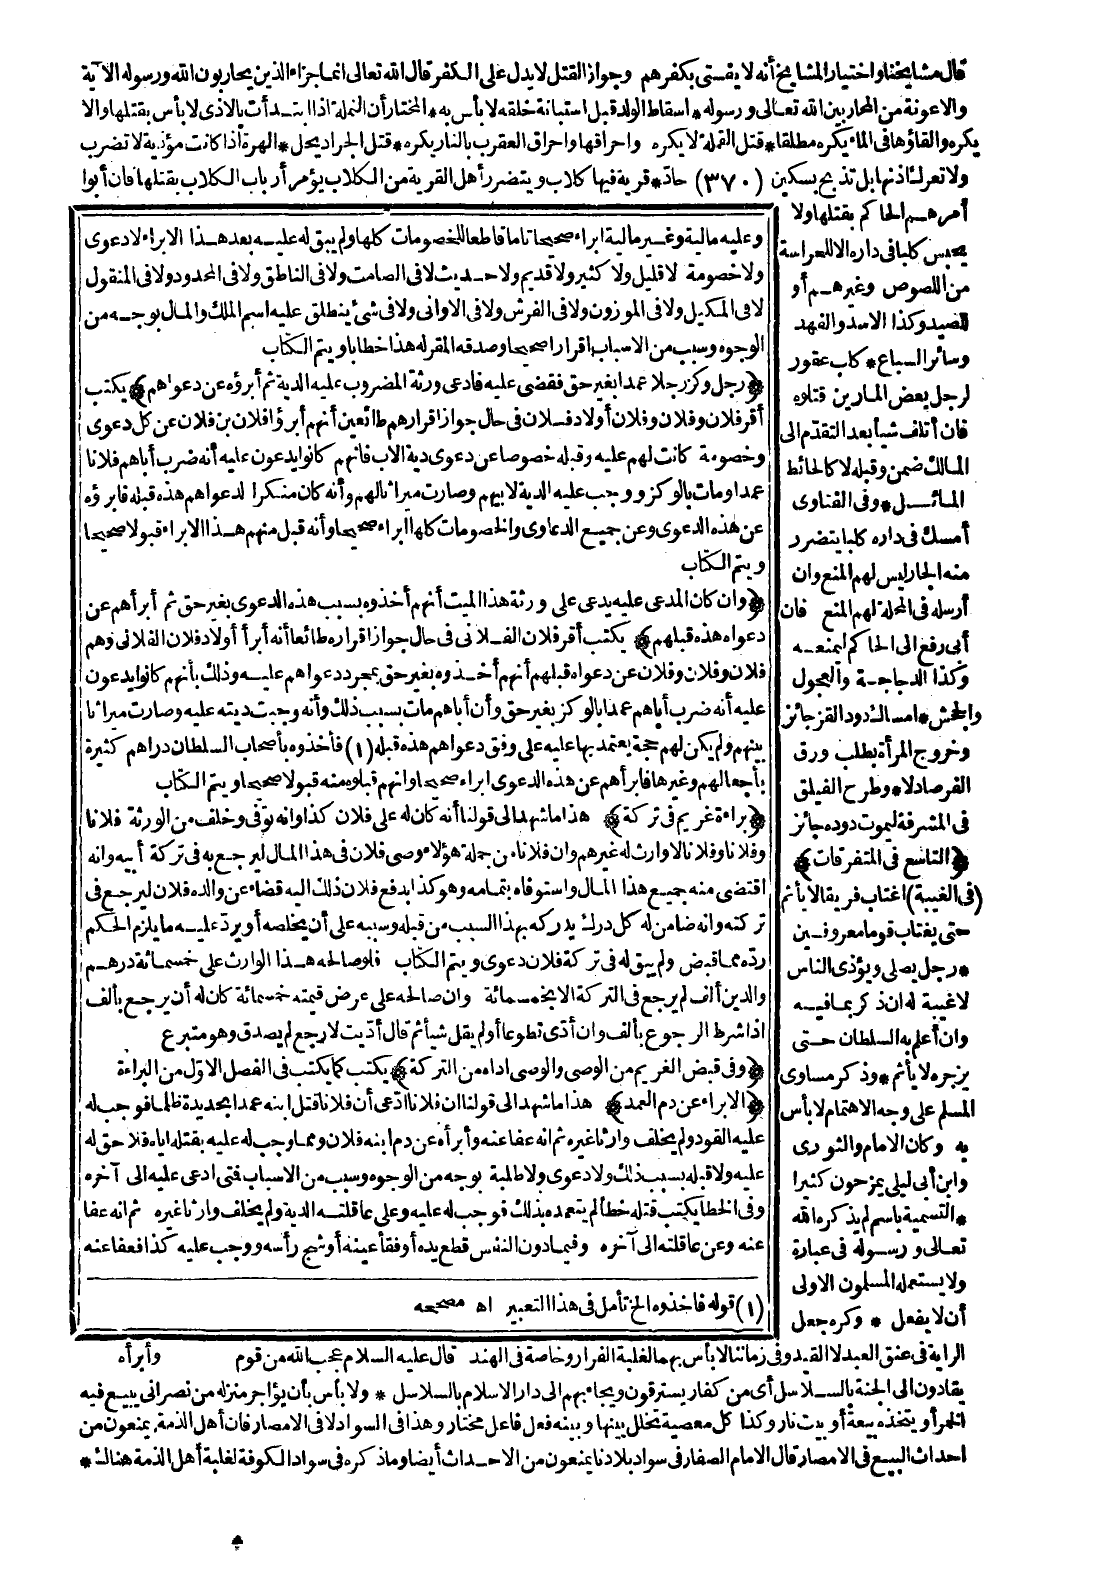 قال مشايخنا واختيار المشايخ أنه لا يفتى بكفرهم وجواز القتل لا يدل على الكفر قال الله تعالى انما جزاء الذين يحاربون الله ورسوله الآية
والاعونة من المحاربين الله تعالى ورسوله * اسقاط الولد قبل استبانة خلقه لا بأس به * المختار أن النملة اذا ابتدأت بالاذى لا بأس بقتلها والا
يكره والقاؤها فى الماء يكره مطلقا * قتل القملة لا يكره واحراقها واحراق العقرب بالنار يكره * قتل الجراد يحل * الهرة اذا كانت مؤذية لا تضرب
ولا تعرك أذنها بل تذبح بسكين (٣٧٠) حاد * قرية فيها كلاب ويتضرر أهل القرية من الكلاب يؤمر أرباب الكلاب بقتلها فان أبوا
أمرهم الحاكم بقتلها ولا
يحبس كلبا فى داره الا للحراسة
من اللصوص وغيرهم أو
للصيد وكذا الاسد والفهد
وسائر السباع * كلب عقور
لرجل يعض المارين قتلوه
فان أتلف شيأ بعد التقدم الى
المالك ضمن وقبله لا كالحائط
المائل * وفى الفتاوى
أمسك فى داره كلبا يتضرر
منه الجار ليس لهم المنع وان
أرسله فى المحلة لهم المنع فان
أبى رفع الى الحاكم ليمنعه
وكذا الدجاجة والعجول
والجحش * امساك دود القز جائز
وخروج المرأة بطلب ورق
الفرصاد لا * وطرح الفيلق
فى المشرقة ليموت دوده جائز
﴿التاسع فى المتفرقات﴾
(فى الغيبة) اغتاب فريقا لا يأثم
حتى يغتاب قوما معروفين
* رجل يصلى ويؤذى الناس
لا غيبة له ان ذكر بما فيه
وان أعلم به السلطان حتى
يزجره لا يأثم * وذكر مساوى
المسلم على وجه الاهتمام لا بأس
به وكان الامام والثورى
وابن أبى ليلى يمزحون كثيرا
* التسمية باسم لم يذكره الله
تعالى ورسوله فى عبارة
ولا يستعمله المسلمون الاولى
أن لا يفعل * وكره جعل
وعليه مالية وغير مالية ابراء صحيحا تاما قاطعا للخصومات كلها ولم يبق له عليه بعد هذا الابراء لا دعوى
ولا خصومة لا قليل ولا كثير ولا قديم ولا حديث لا فى الصامت ولا فى الناطق ولا فى المحدود ولا فى المنقول
لا فى المكيل ولا فى الموزون ولا فى الفرش ولا فى الاوانى ولا فى شئ ينطلق عليه اسم الملك والمال بوجه من
الوجوه وسبب من الاسباب اقرارا صحيحا وصدقه المقر له هذا خطابا ويتم الكتاب
﴿رجل وكز رجلا عمدا بغير حق فقضى عليه فادعى ورثة المضروب عليه الدية ثم أبرؤه عن دعواهم﴾ يكتب
أقر فلان وفلان وفلان أولاد فلان فى حال جواز اقرارهم طائعين أنهم أبرؤا فلان بن فلان عن كل دعوى
وخصومة كانت لهم عليه وقبله خصوصا عن دعوى دية الاب فانهم كانوا يدعون عليه أنه ضرب أباهم فلانا
عمدا ومات بالوكز ووجب عليه الدية لابيهم وصارت ميراثا لهم وأنه كان منكرا لدعواهم هذه قبله فابرؤه
عن هذه الدعوى وعن جميع الدعاوى والخصومات كلها ابراء صحيحا وأنه قبل منهم هذا الابراء قبولا صحيحا
ويتم الكتاب
﴿وان كان المدعى عليه يدعى على ورثة هذا الميت أنهم أخذوه بسبب هذه الدعوى بغير حق ثم أبرأهم عن
دعواه هذه قبلهم﴾ يكتب أقر فلان الفلانى فى حال جواز اقراره طائعا أنه أبرأ أولاد فلان الفلانى وهم
فلان وفلان وفلان عن دعواه قبلهم أنهم أخذوه بغير حق بمجرد دعواهم عليه وذلك بأنهم كانوا يدعون
عليه أنه ضرب أباهم عمدا بالوكز بغير حق وأن أباهم مات بسبب ذلك وأنه وجبت ديته عليه وصارت ميراثا
بينهم ولم يكن لهم حجة يعتمد بها عليه على وفق دعواهم هذه قبله (١) فأخذوه بأصحاب السلطان دراهم كثيرة
بأجعالهم وغيرها فابرأهم عن هذه الدعوى ابراء صحيحا وانهم قبلوه منه قبولا صحيحا ويتم الكتاب
﴿براءة غريم فى تركة﴾ هذا ما شهد الى قولنا أنه كان له على فلان كذا وانه توفى وخلف من الورثة فلانا
وفلانا وفلانا لا وارث له غيرهم وان فلانا من جملة هؤلاء وصى فلان فى هذا المال ليرجع به فى تركة أبيه وانه
اقتضى منه جميع هذا المال واستوفاه بتمامه وهو كذا بدفع فلان ذلك اليه قضاء عن والده فلان ليرجع فى
تركته وانه ضامن له كل درك يدركه بهذا السبب من قبله وسببه على أن يخلصه أو يرد عليه ما يلزم الحكم
رده مما قبض ولم يبق له فى تركة فلان دعوى ويتم الكتاب فلو صالحه هذا الوارث على خمسمائة درهم
والدين ألف لم يرجع فى التركة الا بخمسمائة وان صالحه على عرض قيمته خمسمائة كان له أن يرجع بألف
اذا شرط الرجوع بألف وان أدى تطوعا أو لم يقل شيأ ثم قال أديت لارجع لم يصدق وهو متبرع
﴿وفى قبض الغريم من الوصى والوصى اداه من التركة﴾ يكتب كما يكتب فى الفصل الاول من البراءة
﴿الابراء عن دم العمد﴾ هذا ما شهد الى قولنا ان فلانا ادعى أن فلانا قتل ابنه عمدا بحديدة ظلما فوجب له
عليه القود ولم يخلف وارثا غيره ثم انه عفا عنه وأبرأه عن دم ابنه فلان وعما وجب له عليه بقتله اياه فلا حق له
عليه ولا قبله بسبب ذلك ولا دعوى ولا طلبة بوجه من الوجوه وسبب من الاسباب فتى ادعى عليه الى آخره
وفى الخطا يكتب قتله خطأ لم يتعمده بذلك فوجب له عليه وعلى عاقلته الدية ولم يخلف وارثا غيره ثم انه عفا
عنه وعن عاقلته الى آخره وفيما دون النفس قطع يده أو فقأ عينه أو شج رأسه ووجب عليه كذا فعفا عنه
(١) قوله فاخذوه الخ تأمل فى هذا التعبير اه مصححه
وأبرأه
الراية فى عنق العبد لا القيد وفى زماننا لا بأس بهما لغلبة الفرار وخاصة فى الهند قال عليه السلام عجب الله من قوم
يقادون الى الجنة بالسلاسل أى من كفار يسترقون ويجاء بهم الى دار الاسلام بالسلاسل * ولا بأس بأن يؤاجر منزله من نصرانى يبيع فيه
الخمر أو يتخذه بيعة أو بيت نار وكذا كل معصية تخلل بينها وبينه فعل فاعل مختار وهذا فى السواد لا فى الامصار فان أهل الذمة يمنعون من
احداث البيع فى الامصار قال الامام الصفار فى سواد بلادنا يمنعون من الاحداث أيضا وما ذكره فى سواد الكوفة لغلبة أهل الذمة هنالك *